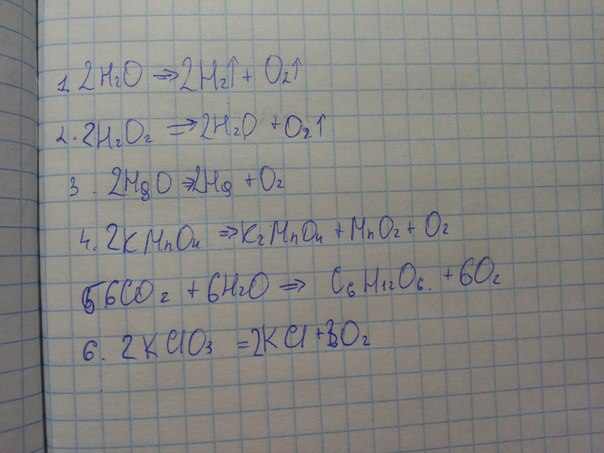 1. 2H₂O => 2H₂↑ + O₂↑
2. 2H₂O₂ => 2H₂O + O₂↑
3. 2HgO => 2Hg + O₂
4. 2KMnO₄ => K₂MnO₄ + MnO₂ + O₂
5 6CO₂ + 6H₂O => C₆H₁₂O₆. + 6O₂
6. 2KClO₃ = 2KCl + 3O₂